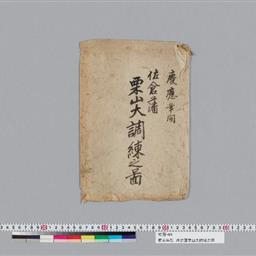 慶應年間
佐倉藩
栗山大調練之圖